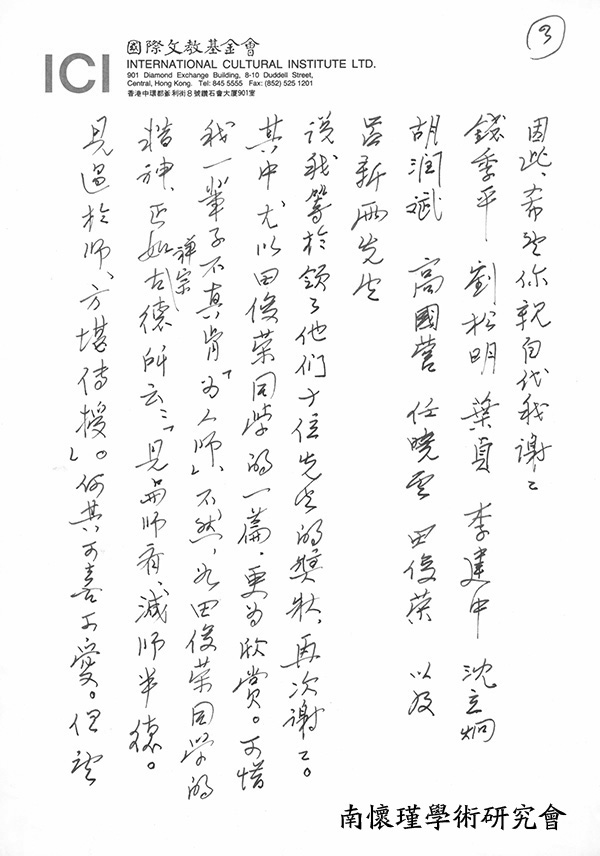 ③
ICI
國際文教基金會
INTERNATIONAL CULTURAL INSTITUTE LTD.
901 Diamond Exchange Building, 8-10 Duddell Street,
Central, Hong Kong. Tel: 845 5555 Fax: (852) 525 1201
香港中環都爹利街8號鑽石會大厦901室
因此、希望你親自代我謝謝
錢季平 劉松明 葉貞 李建中 沈立炯
胡润斌 高國营 任曉雲 田俊荣 以及
吕新雨先生
说我等於领了他们十位先生的獎状、再次謝謝。
其中尤以田俊荣同学的一篇、更为欣賞。可惜
我一輩子不真肯「为人师」、不然、如田俊荣同学的
精神、正如禅宗古德所云:「見与师齊、減师半德。
見過於师、方堪傳授」。何其可喜可愛。但望
南懷瑾學術研究會